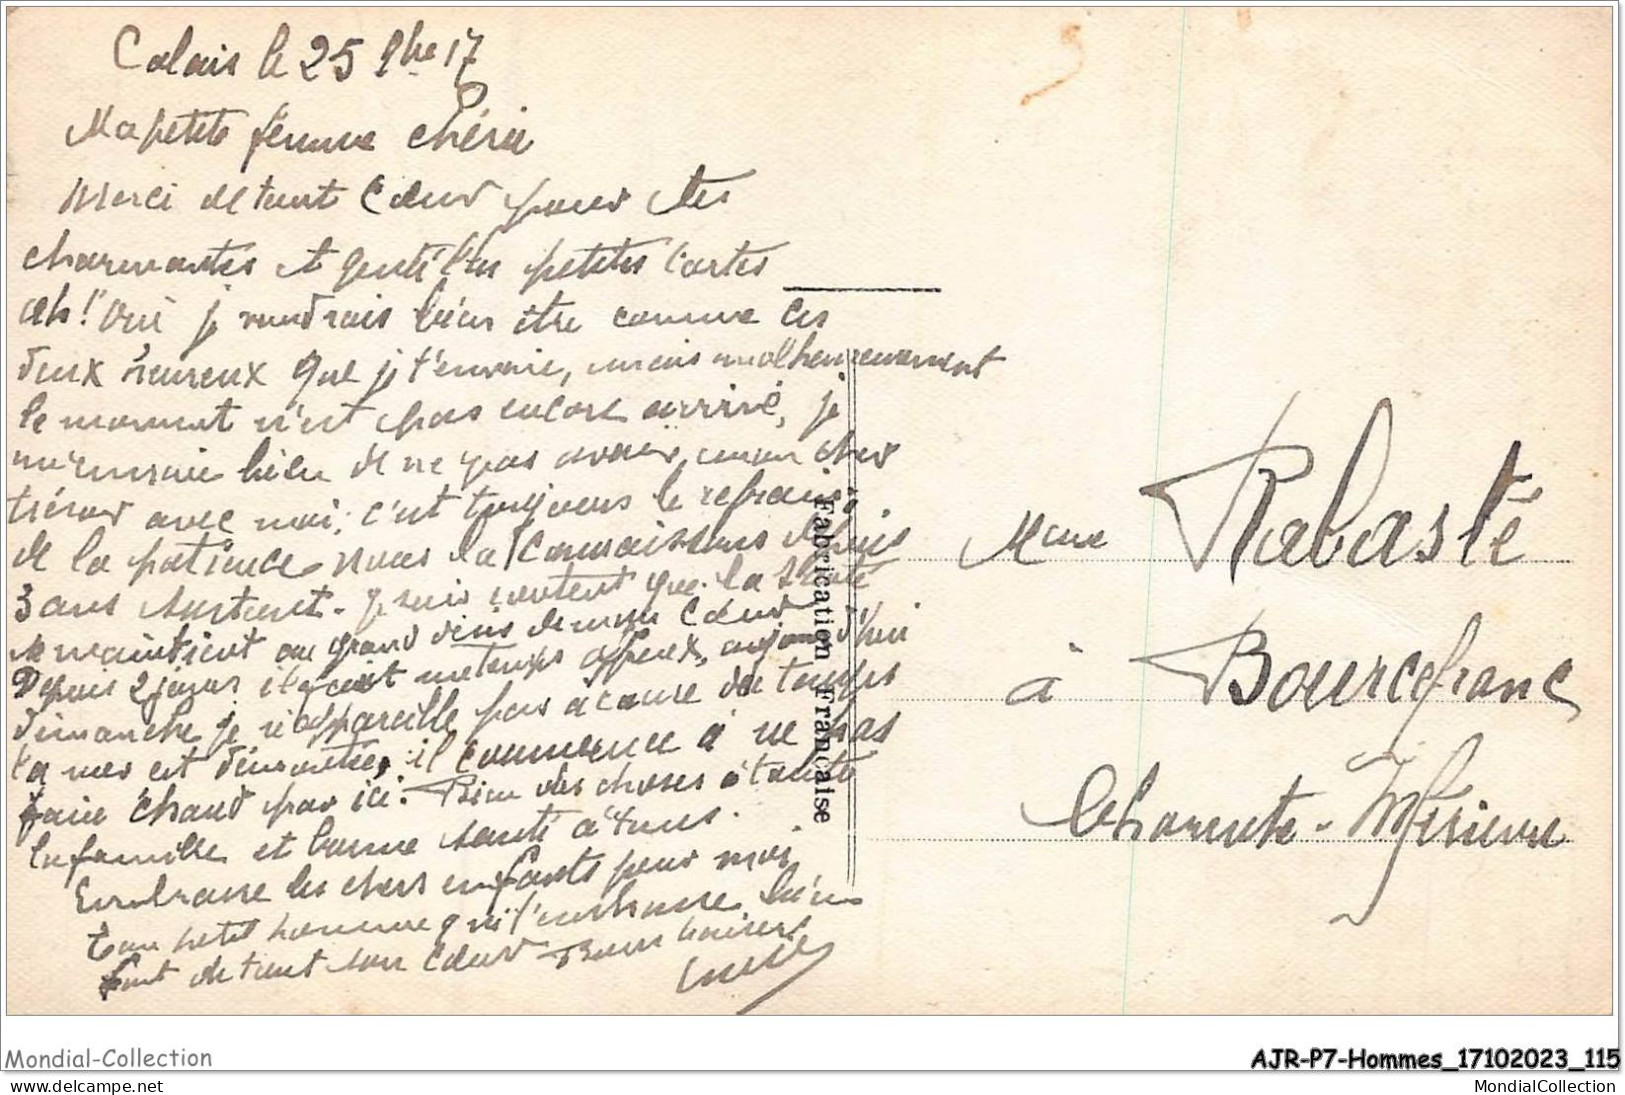 Calais le 25 9bre 17
Ma petite femme chérie
Merci de tout Cœur pour tes
charmantes et gentilles petites Cartes
ah! oui je voudrais bien être comme ces
deux heureux que je t'envoie, mais malheureusement
le moment n'est pas encore arrivé, je
m'ennuie bien de ne pas avoir mon cher
trésor avec moi, c'est toujours le refrain
de la patience nous la connaissons depuis
3 ans surtout. je suis content que la Santé
se maintient au grand désir de mon Cœur
Depuis 2 jours il fait un temps affreux, aujourd'hui
dimanche je n'appareille pas à cause du temps
la mer est démontée, il commence à ne pas
faire chaud par ici. Bien des choses à toute
la famille et bonne santé à tous.
Embrasse les chers enfants pour moi
ton petit homme qui t'embrasse bien
fort de tout son Cœur Bons baisers
Fabrication Française
Mme Rabasté
à Bourcefranc
Charente-Inférieure
Mondial-Collection
AJR-P7-Hommes_17102023_115
www.delcampe.net
MondialCollection